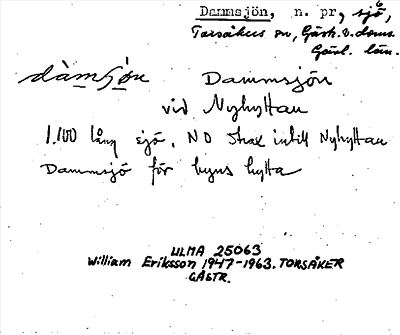 Dammsjön, n. pr, sjö,
Torsåkers sn, Gästr. ö. doms.
Gävl. län.
dàmsjön Dammsjön
vid Nyhyttan
1.100 lång sjö, NO strax intill Nyhyttan
Dammsjö för byns hytta
ULMA 25063
William Eriksson 1947-1963. TORSÅKER
GÄSTR.